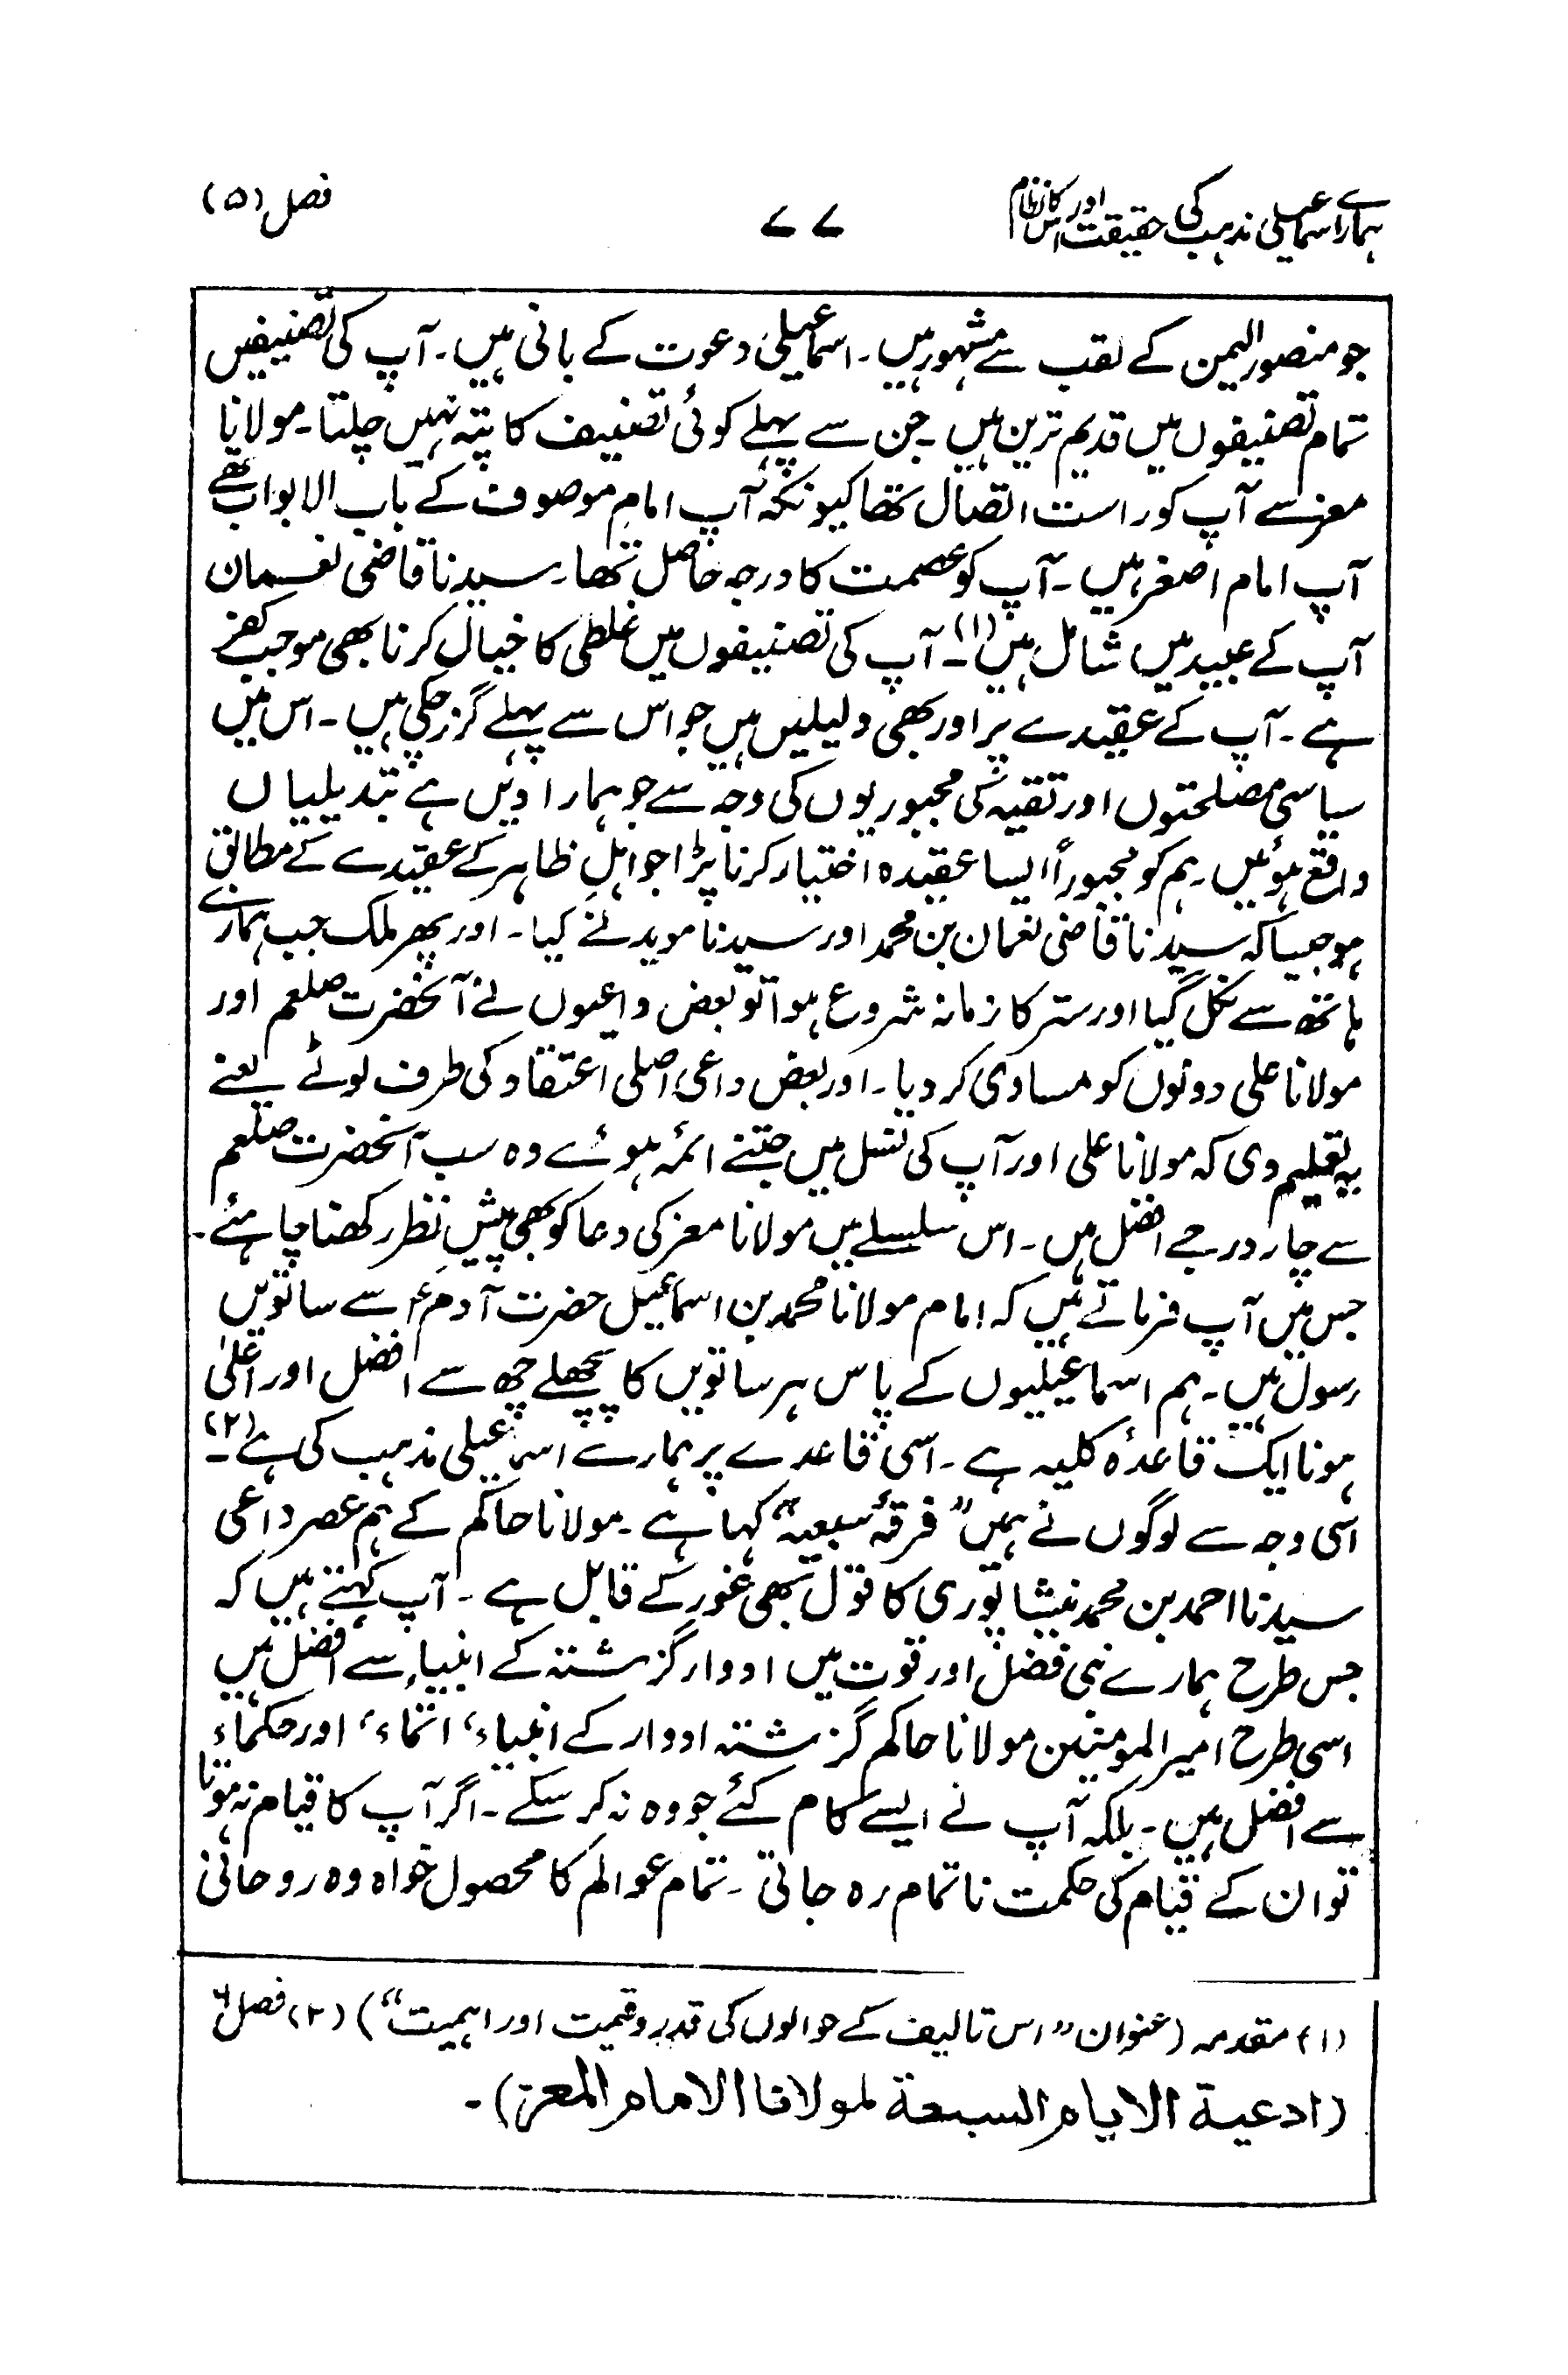 ہمارے اسماعیلی مذہب کی حقیقت اور اس کا نظام
۷۷
فصل (۵)
جو منصور الیمن کے لقب سے مشہور ہیں۔ اسماعیلی دعوت کے بانی ہیں۔ آپ کی تصنیفیں
تمام تصنیفوں میں قدیم ترین ہیں۔ جن سے پہلے کوئی تصنیف کا پتہ نہیں چلتا۔ مولانا
معز سے آپ کو راست اتصال تھا کیونکہ آپ امامِ موصوف کے باب الابواب تھے
آپ امام اصغر ہیں۔ آپ کو عصمت کا درجہ حاصل تھا۔ سیدنا قاضی نعمان
آپ کے عبید میں شامل ہیں (۱)۔ آپ کی تصنیفوں میں غلطی کا خیال کرنا بھی موجب کفر
ہے۔ آپ کے عقیدے پر اور بھی دلیلیں ہیں جو اس سے پہلے گزر چکی ہیں۔ اس میں
سیاسی مصلحتوں اور تقیہ کی مجبوریوں کی وجہ سے جو ہمارا دین ہے تبدیلیاں
واقع ہوئیں۔ ہم کو مجبوراً ایسا عقیدہ اختیار کرنا پڑا جو اہلِ ظاہر کے عقیدے کے مطابق
ہو جیسا کہ سیدنا قاضی نعمان بن محمد اور سیدنا موید نے کیا۔ اور پھر ملک جب ہمارے
ہاتھ سے نکل گیا اور ستر کا زمانہ شروع ہوا تو بعض داعیوں نے آنحضرت صلعم اور
مولانا علی دونوں کو مساوی کر دیا۔ اور بعض داعی اصلی اعتقاد کی طرف لوٹے یعنے
یہ تعلیم دی کہ مولانا علی اور آپ کی نسل میں جتنے ائمہ ہوئے وہ سب آنحضرت صلعم
سے چار درجے افضل ہیں۔ اس سلسلے میں مولانا معز کی دعا کو بھی پیشِ نظر رکھنا چاہئے۔
جس میں آپ فرماتے ہیں کہ امام مولانا محمد بن اسماعیل حضرت آدمؑ سے ساتویں
رسول ہیں۔ ہم اسماعیلیوں کے پاس ہر ساتویں کا پچھلے چھ سے افضل اور اعلیٰ
ہونا ایک قاعدۂ کلیہ ہے۔ اسی قاعدے پر ہمارے اسمٰعیلی مذہب کی ہے (۲)۔
اسی وجہ سے لوگوں نے ہمیں ”فرقۂ سبعیہ“ کہا ہے۔ مولانا حاکم کے ہم عصر داعی
سیدنا احمد بن محمد نیشاپوری کا قول بھی غور کے قابل ہے۔ آپ کہتے ہیں کہ
جس طرح ہمارے نبی فضل اور قوت میں ادوار گزشتہ کے انبیاء سے افضل ہیں
اسی طرح امیر المومنین مولانا حاکم گزشتہ ادوار کے انبیاء، ائماء، اور حکماء
سے افضل ہیں۔ بلکہ آپ نے ایسے کام کئے جو وہ نہ کر سکے۔ اگر آپ کا قیام نہ ہوتا
تو ان کے قیام کی حکمت ناتمام رہ جاتی۔ تمام عوالم کا محصول خواہ وہ روحانی
(۱) مقدمہ (عنوان ”اس تالیف کے حوالوں کی قدر و قیمت اور اہمیت“) (۲) فصل
(ادعیة الایام السبعة لمولانا الامام المعز)۔